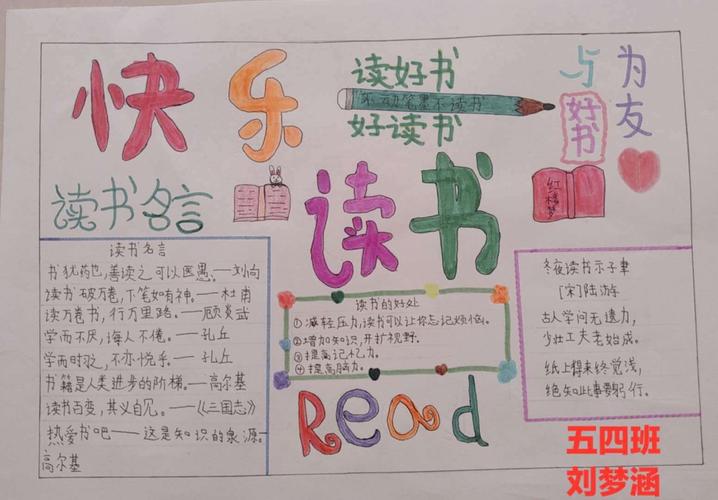 快乐
读好书
不动笔墨不读书
好读书
与
好书
为友
读书名言
红楼梦
读书
读书名言
书犹药也,善读之可以医愚。——刘向
读书破万卷,下笔如有神。——杜甫
读万卷书,行万里路。——顾炎武
学而不厌,诲人不倦。——孔丘
学而时习之,不亦悦乎。——孔丘
书籍是人类进步的阶梯。——高尔基
读书百变,其义自见。——《三国志》
热爱书吧——这是知识的泉源。
高尔基
读书的好处
①减轻压力,读书可以让你忘记烦恼。
②增加知识,开扩视野。
③提高记忆力。
④提高脑力。
冬夜读书示子聿
[宋]陆游
古人学问无遗力,
少壮工夫老始成。
纸上得来终觉浅,
绝知此事要躬行。
Read
五四班
刘梦涵